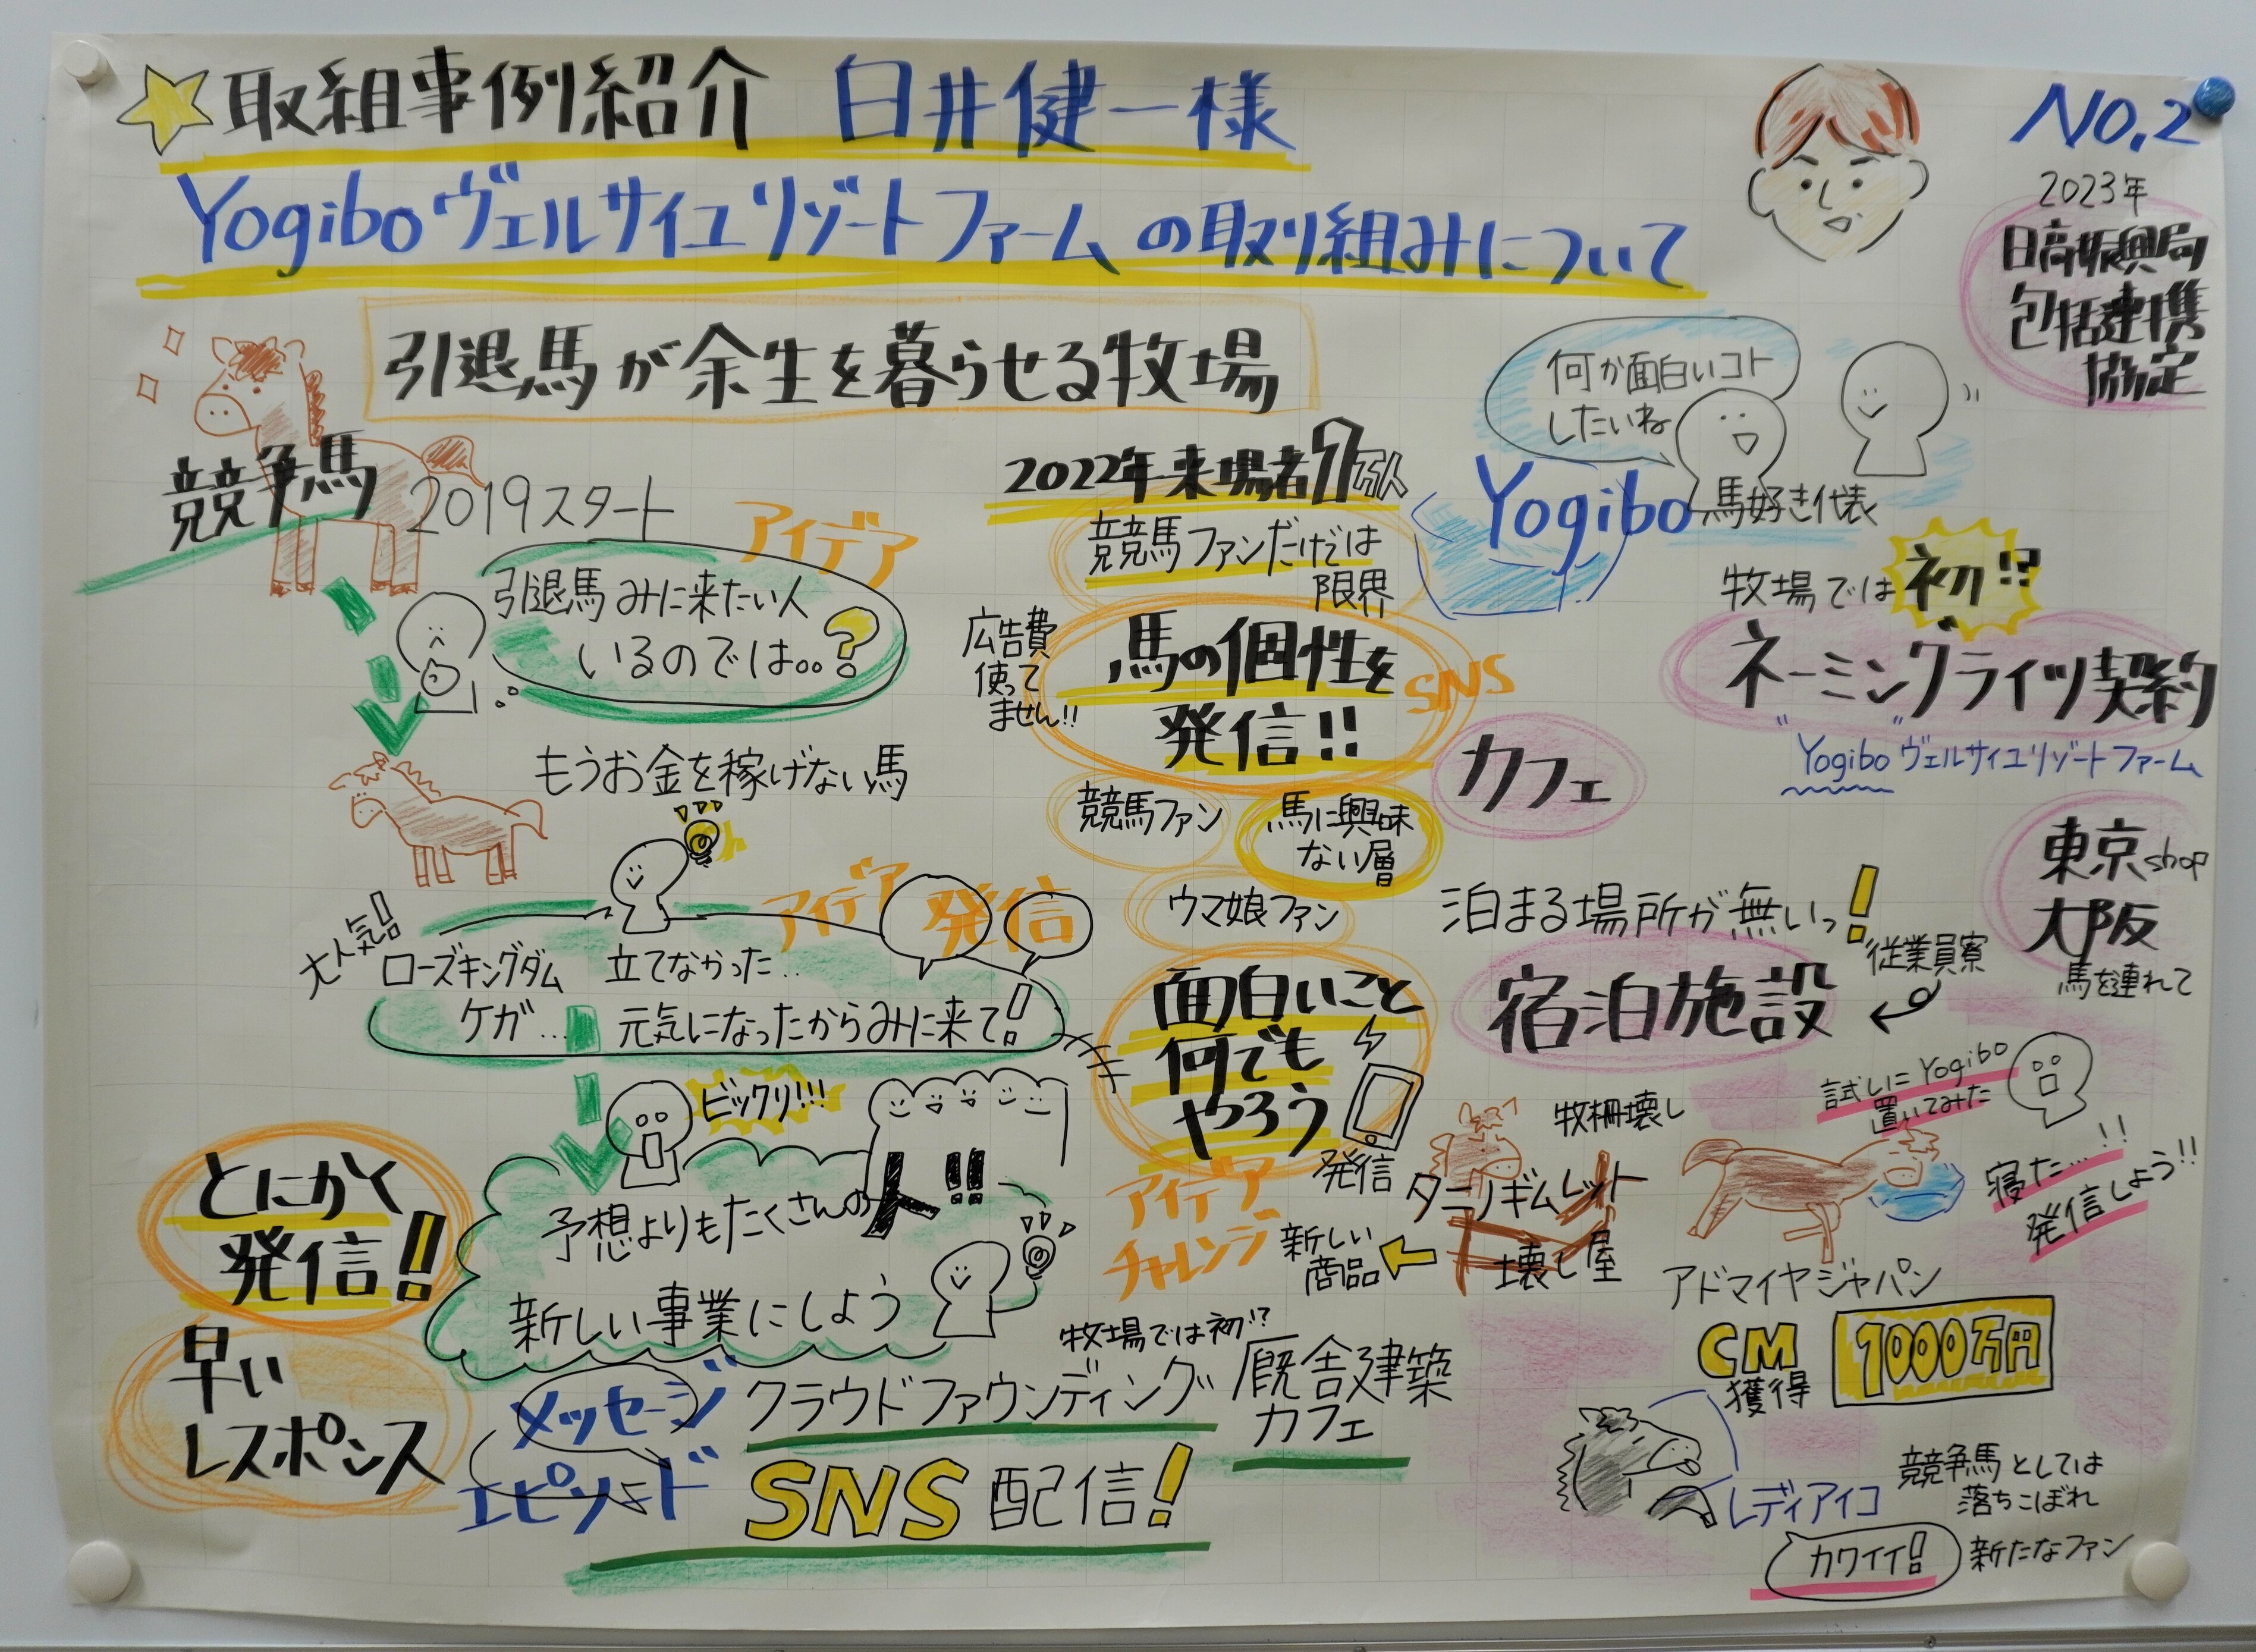 取組事例紹介 臼井健一様
Yogiboヴェルサイユリゾートファームの取り組みについて
NO.2
2023年
日高振興局
包括連携
協定
引退馬が余生を暮らせる牧場
競争馬
2019スタート
アイデア
引退馬みに来たい人
いるのでは。。?
もうお金を稼げない馬
アイデア 発信
大人気!
ローズキングダム 立てなかった..
ケガ... 元気になったからみに来て!
ビックリ!!!
予想よりもたくさんの人!!
新しい事業にしよう
とにかく
発信!!
早い
レスポンス
メッセージ
エピソード
牧場では初!?
クラウドファウンディング
厩舎建築
カフェ
SNS 配信!
2022年来場者1万人
競馬ファンだけでは
限界
広告費
使って
ません!!
馬の個性を
発信!!
SNS
競馬ファン
馬に興味
ない層
ウマ娘ファン
面白いこと
何でも
やろう
発信
アイデア
チャレンジ
何か面白いコト
したいね
Yogibo
馬好き代表
牧場では初!?
ネーミングライツ契約
"Yogibo"ヴェルサイユリゾートファーム
カフェ
東京shop
大阪
馬を連れて
泊まる場所が無いっ!
宿泊施設
従業員寮
牧柵壊し
タニノギムレット
壊し屋
新しい
商品
試しにYogibo
置いてみた
寝た...!!
発信しよう!!
アドマイヤジャパン
CM
獲得
1000万円
レディアイコ
競争馬としては
落ちこぼれ
カワイイ!
新たなファン